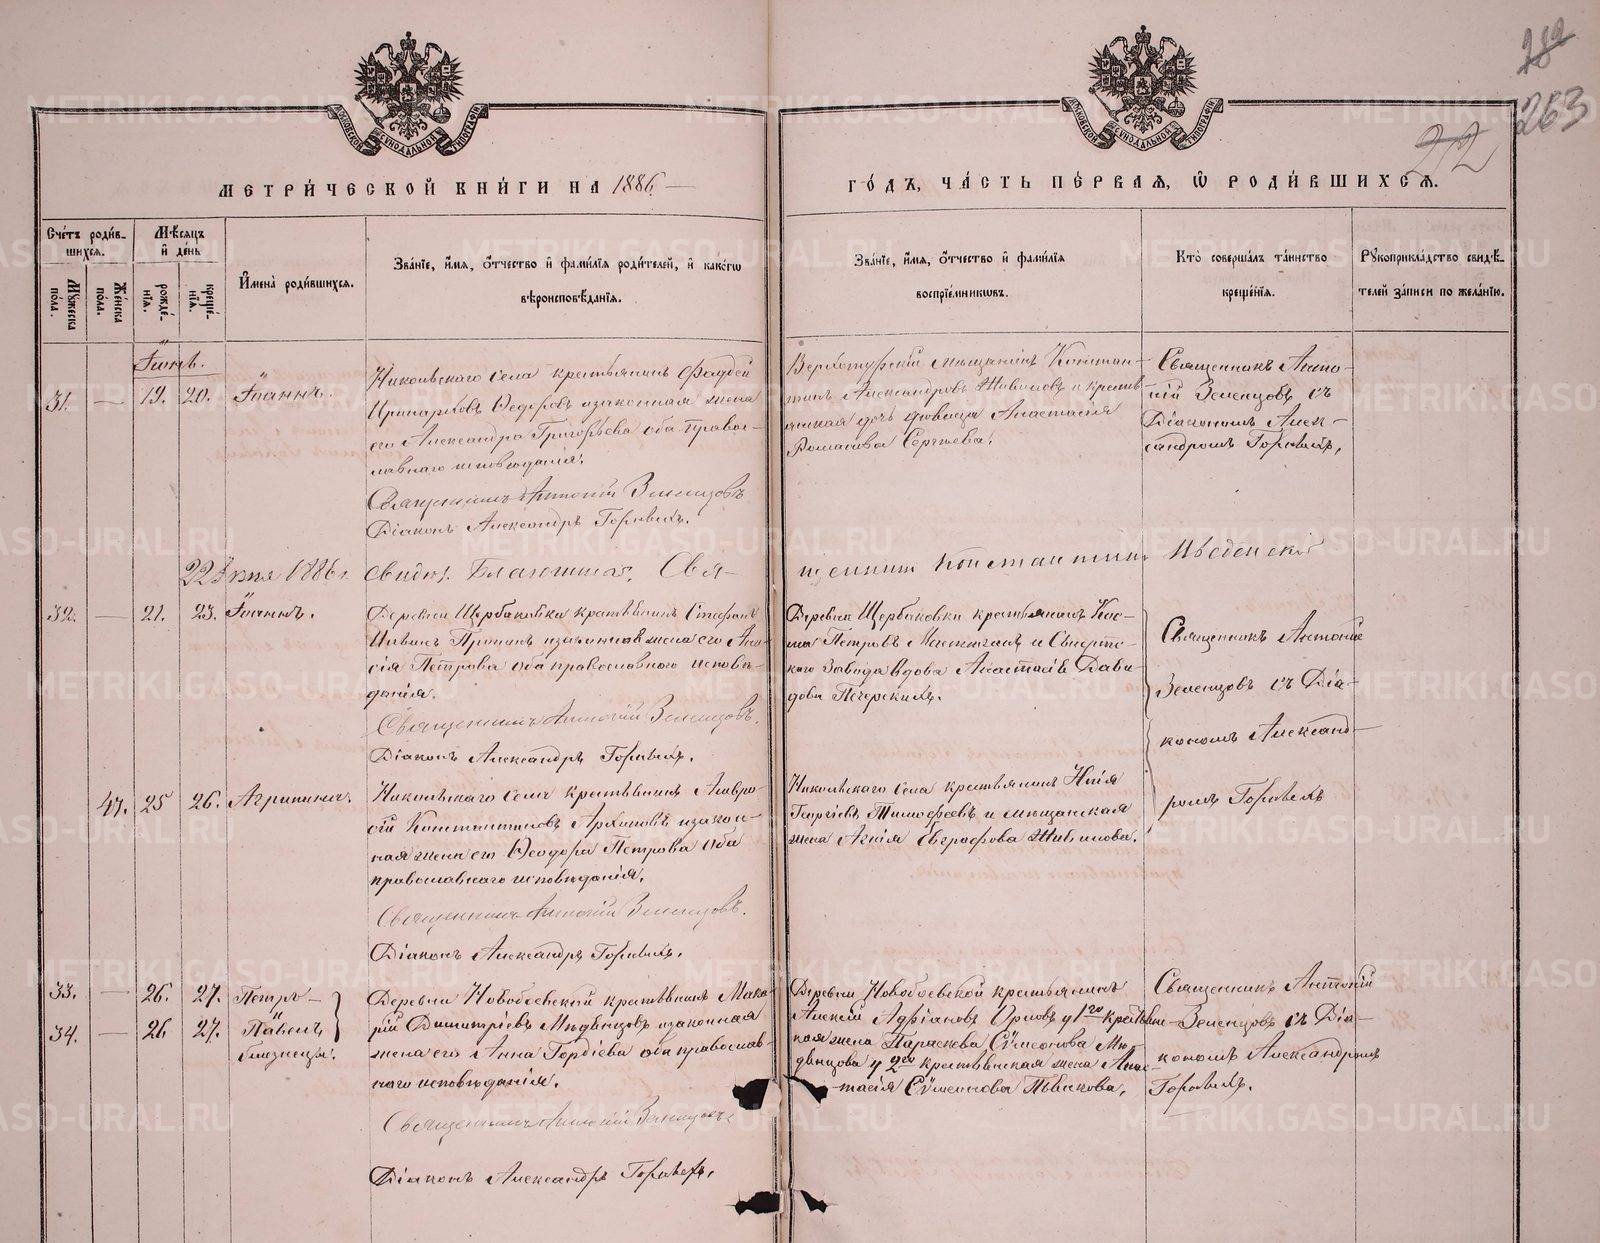 282
263
212
МОСКОВСКОЙ СѴНОДАЛЬНОЙ ТИПОГРАФІИ
МОСКОВСКОЙ СѴНОДАЛЬНОЙ ТИПОГРАФІИ
МЕТРИ́ЧЕСКОЙ КНИ́ГИ НА 1886
ГО́ДЪ, ЧА́СТЬ ПЕ́РВАЯ, Ѡ РОДИ́ВШИХСЯ.
Сче́тъ роди́в-
шихся.
Мѣ́сяцъ
и де́нь
Му́жеска по́ла.
Же́нска по́ла.
рожде́-
нія.
креще́-
нія.
Имена̀ роди́вшихся.
Зва́ніе, и́мя, о́тчество и фами́лія роди́телей, и како́гѡ
вѣроисповѣ́данія.
Зва́ніе, и́мя, о́тчество и фами́лія
воспріе́мниковъ.
Кто̀ соверша́лъ та́инство
креще́нія.
Рукоприкла́дство свидѣ́-
телей за́писи по жела́нію.
Іюнь.
31. — 19. 20. Іоаннъ.
Никольскаго села крестьянинъ Фаддей
Ѳедоровъ и законная жена
его Александра Григорьева оба право-
славнаго исповѣданія.
Священникъ Антоній Зеленцовъ
Діаконъ Александръ Горныхъ.
Верхотурскій мѣщанинъ Констан-
тинъ Александровъ Живиловъ и кресть-
янская дочь дѣвица Анастасія
Романова Сергѣева.
Священникъ Анто-
ній Зеленцовъ съ
Діакономъ Алек-
сандромъ
22 Іюня 1886 г. Свидѣт. Благочинный, Свя-
щенникъ Константинъ
32. — 21. 23. Іоаннъ.
Деревни Щербаковки крестьянинъ Стефанъ
Ивановъ и законная жена его
Петрова оба православнаго исповѣ-
данія.
Священникъ Антоній Зеленцовъ.
Діаконъ Александръ
Деревни Щербаковки крестьянинъ Кос-
ма Петровъ и
каго завода вдова Анастасія Дави-
дова Печерскихъ.
Священникъ Антоній
Зеленцовъ съ Діа-
кономъ Александ-
ромъ
47. 25 26. Агрипина.
Никольскаго села крестьянинъ Амвро-
сій Константиновъ Архиповъ и закон-
ная жена его Ѳеодора Петрова оба
православнаго исповѣданія.
Священникъ Антоній Зеленцовъ.
Діаконъ Александръ
Никольскаго села крестьянинъ Илія
Георгіевъ Тимофеевъ и мѣщанская
жена Агнія Евграфова Живилова.
33. — 26. 27. Петръ —
34. — 26 27. Павелъ
близнецы.
Деревни Новобоевской крестьянинъ Мака-
рій Димитріевъ Мѣдвѣдцовъ и законная
жена его Анна Гордіева оба православ-
наго исповѣданія.
Священникъ Антоній Зеленцовъ
Діаконъ Александръ
Деревни Новобоевской крестьянинъ
Алексій Адріановъ Орловъ у 1го крестьян-
ская жена Параскева Сѵмеонова
у 2го крестьянская жена Анас-
тасія Сѵмеонова
Священникъ Антоній
Зеленцовъ съ Діа-
кономъ Александромъ